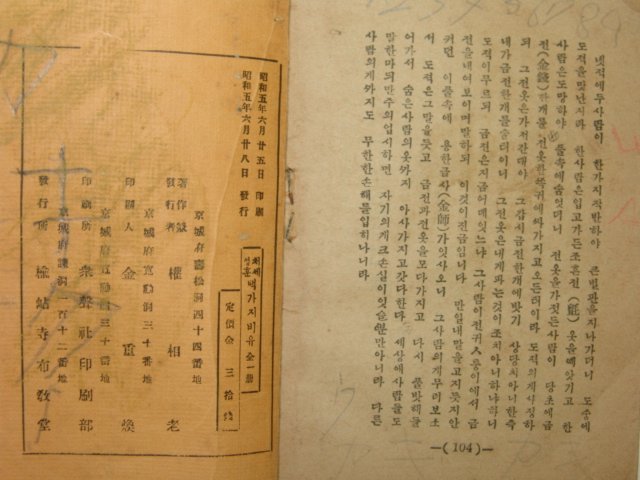 넷적에두사람이 한가지작반하야 큰벌판을지나가더니 도중에
도적을맛난지라 한사람은입고가든조흔전(氈)옷을빼앗기고 한
사람은도망하야 풀속에숨엇더니 전옷을가젓든사람이 당초에금
전(金錢)한개를 전옷한쪽귀에싸가지고오든터이라 도적의게사정하
되 그전옷은가저간대야 그갑시금전한개에밧기 상당치아니한즉
내가금전한개를줄터이니 그전옷은내게파는것이조치아니하냐하니
도적이무르되 금전은지금어데잇느냐 그사람이전귀人중이에서 금
전을내여보이며말하되 이것이전금입니다 만일내말을고지듯지안
커던 이풀속에 용한금사(金師)가잇사오니 그사람의게무러보소
서 도적은그말을듯고 금전과전옷을모다가지고 다시 풀밧헤를
어가서 숨은사람의옷까지 아사가지고갓다한다 세상에사람들도
말한마듸만주의업시하면 자기의게크손실이잇슬뿐만아니라 다른
사람의게까지도 무한한손해를입히나니라
—(104)—
처세
성훈 벽가지비유 全一冊
定價金 三拾錢
昭和五年六月廿五日 印刷
昭和五年六月廿八日 發行
京城府壽松洞四十四番地
著作兼
發行者 權相老
京城府寬勳洞三十番地
印刷人 金重煥
京城府寬勳洞三十番地
印刷所 衆聲社印刷部
京城府諫洞一百十二番地
發行所 寺布教堂